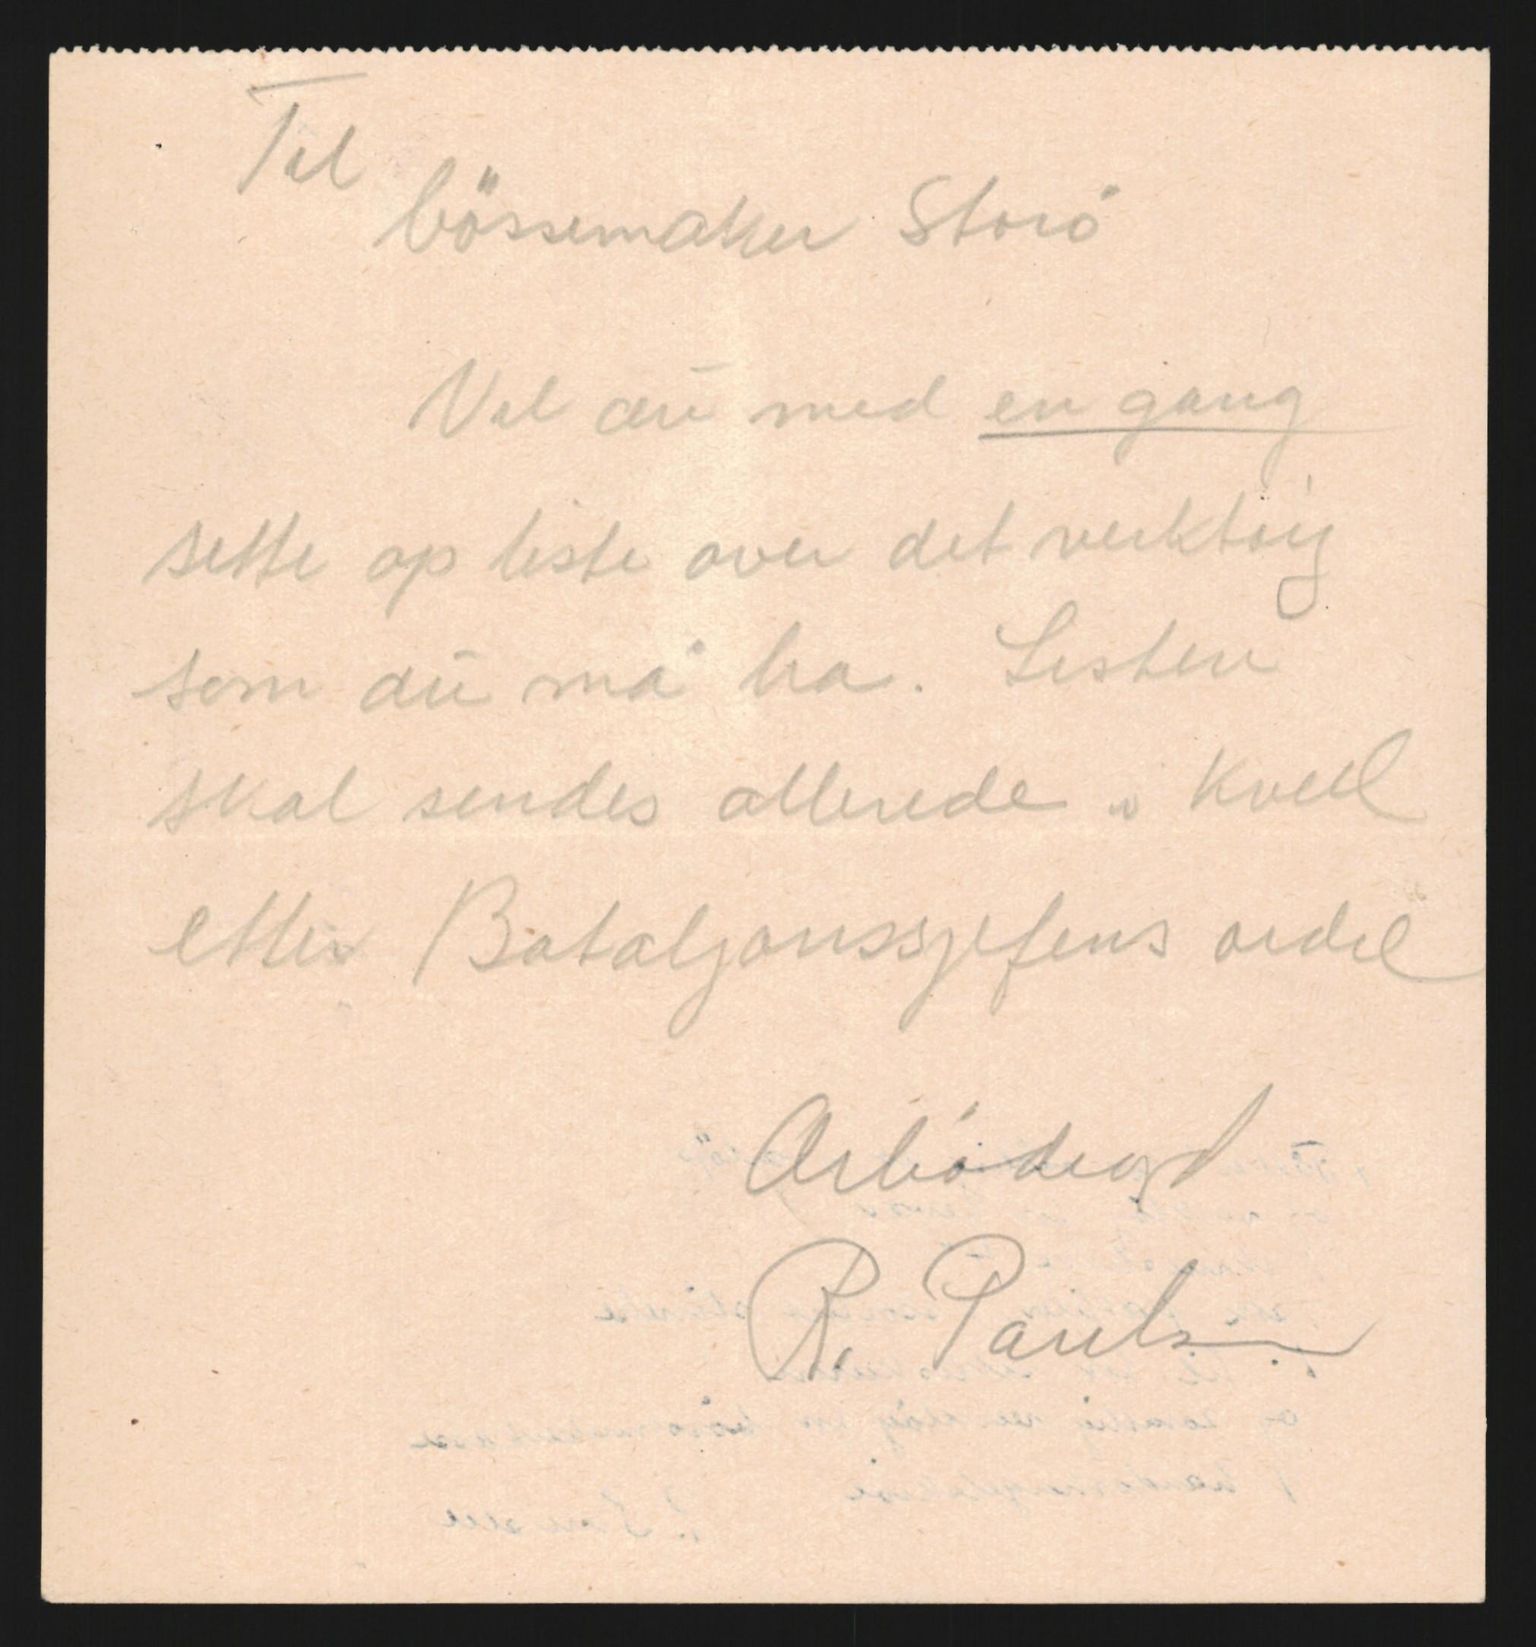 Til
bössemaker Storö
Vil du med en gang
sette op liste over det verktöy
som du må ha. Listen
skal sendes allerede i kveld
etter Bataljonssjefens ordre
Arbödigst
R. Paulsen